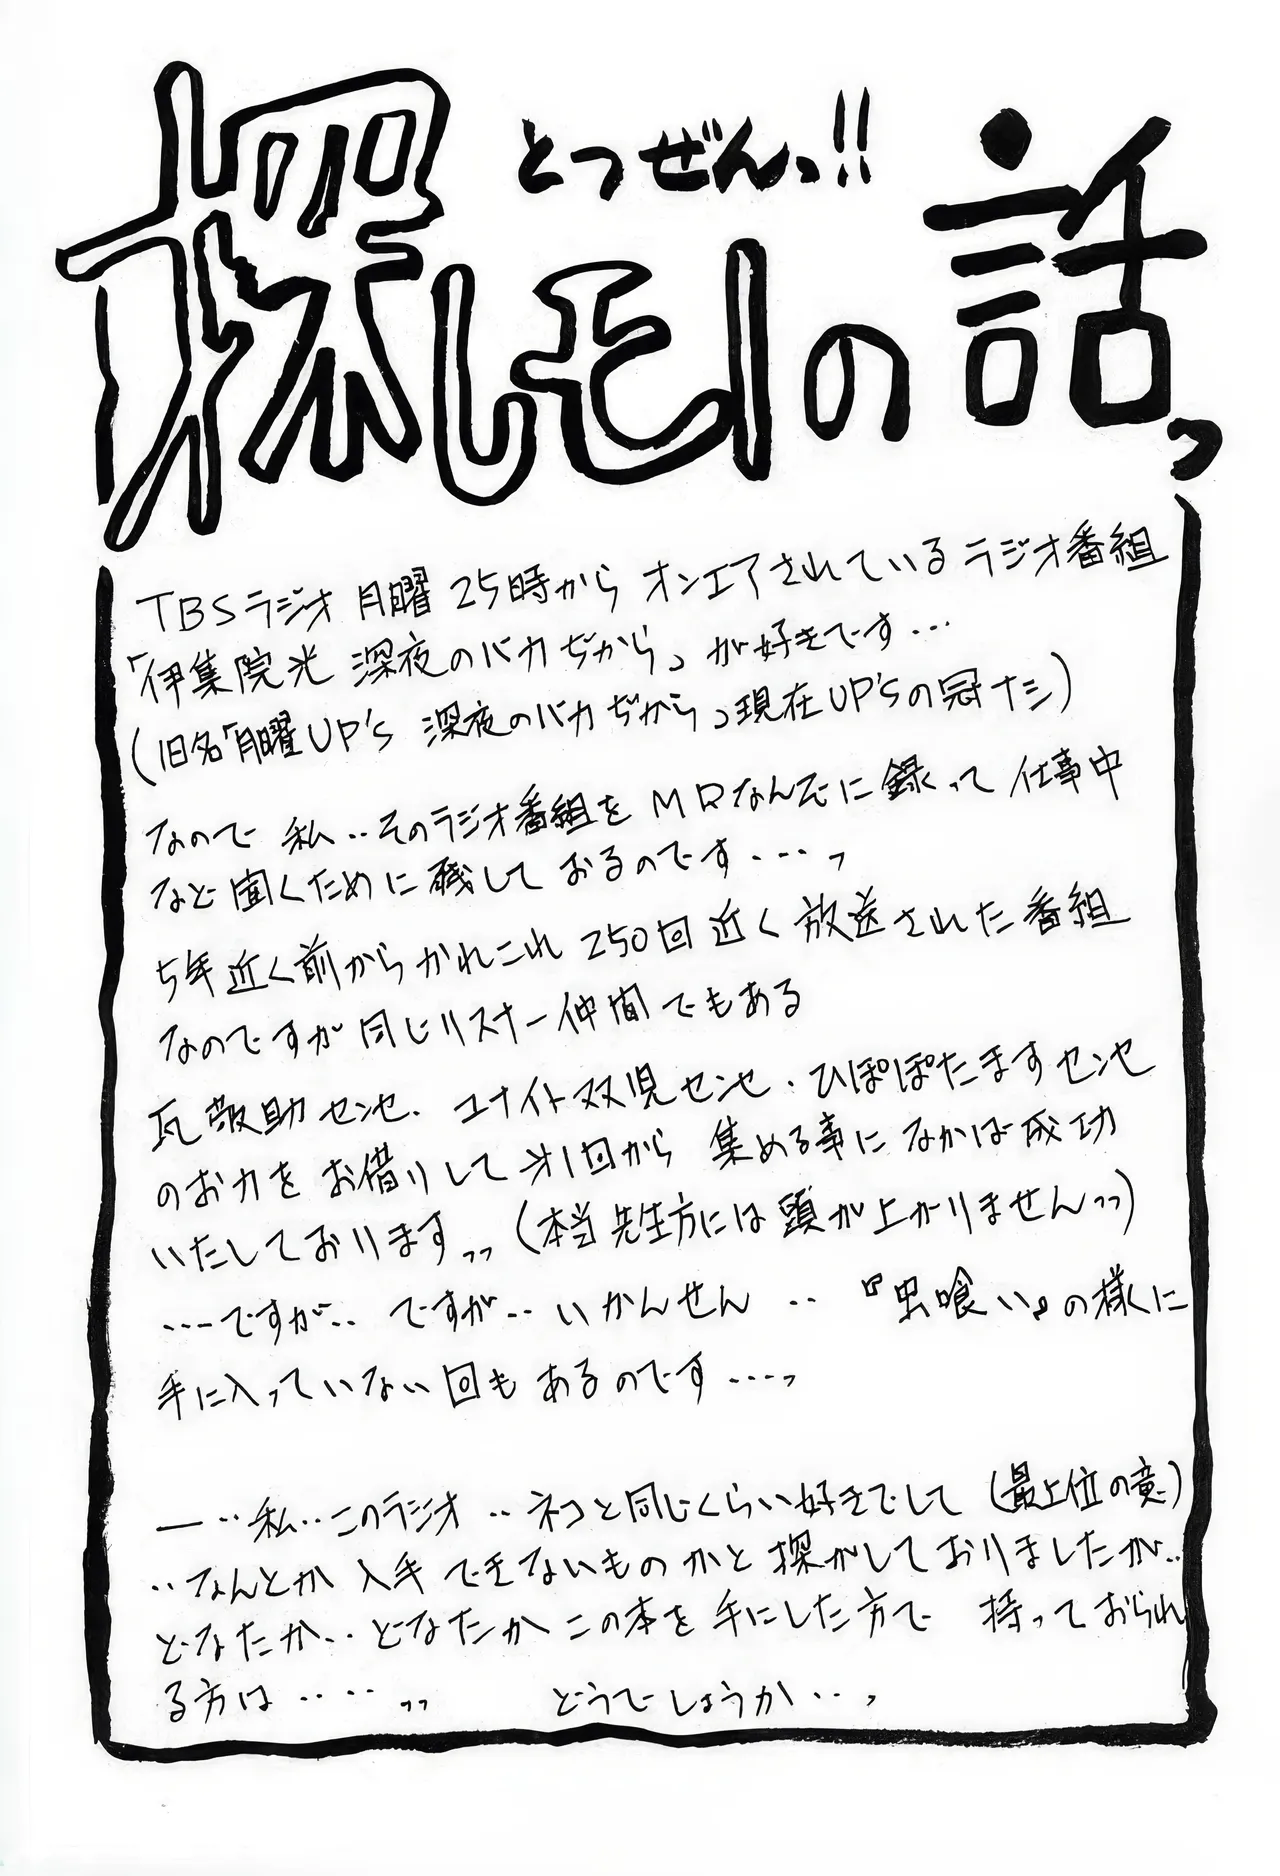 とつぜんっ!!
探しモノの話っ
TBSラジオ 月曜 25時から オンエアされている ラジオ番組
「伊集院光 深夜のバカぢから」が好きです…
(旧名「月曜UP'S 深夜のバカぢから」現在UP'Sの冠ナシ)
なので 私‥そのラジオ番組を MDなんぞに録って 仕事中
など聞くために残しておるのです‥‥っ
5年近く前からかれこれ 250回近く放送された番組
なのですが同じリスナー仲間でもある
瓦敬助センセ、ユナイト双児センセ・ひぽぽたますセンセ
のお力をお借りして第1回から 集める事になかば成功
いたしております〃 (本当先生方には頭が上がりません〃)
…ですが‥ ですが‥ いかんせん ‥ 『虫喰い』の様に
手に入っていない回も あるのです…っ
―‥私‥このラジオ‥ネコと同じくらい好きでして (最上位の意)
‥なんとか入手できないものかと探がしておりましたが‥
どなたか‥どなたかこの本を手にした方で 持っておられ
る方は‥‥〃 どうでしょうか‥っ